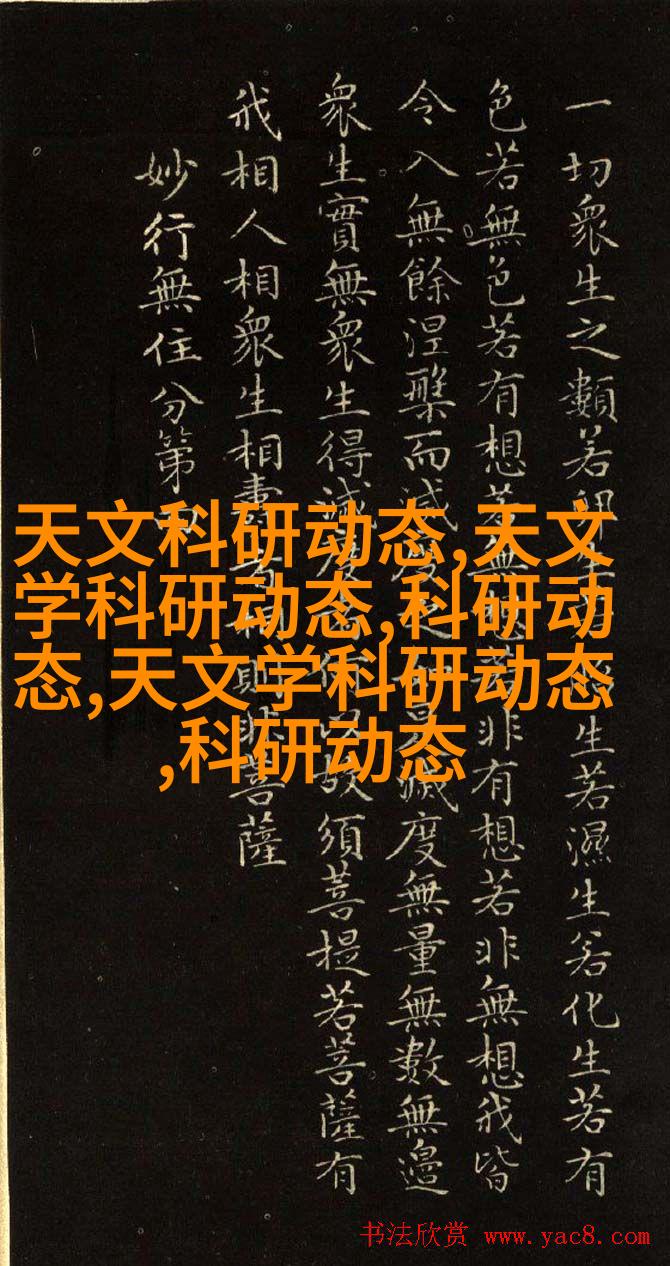 一切衆生之類若卵生若濕生若化生若有
色若無色若有想若無非有想若非無想我皆
令入無餘涅槃而滅度是滅度無量無數無邊
衆生實無衆生得滅度何以故須菩提若菩薩有
我相人相衆生相壽相則非菩薩
妙行無住分第四
天文科研动态,天文
学科研动态,科研动
态,天文学科研动态
,科研动态
书法欣赏 www.yac8.com